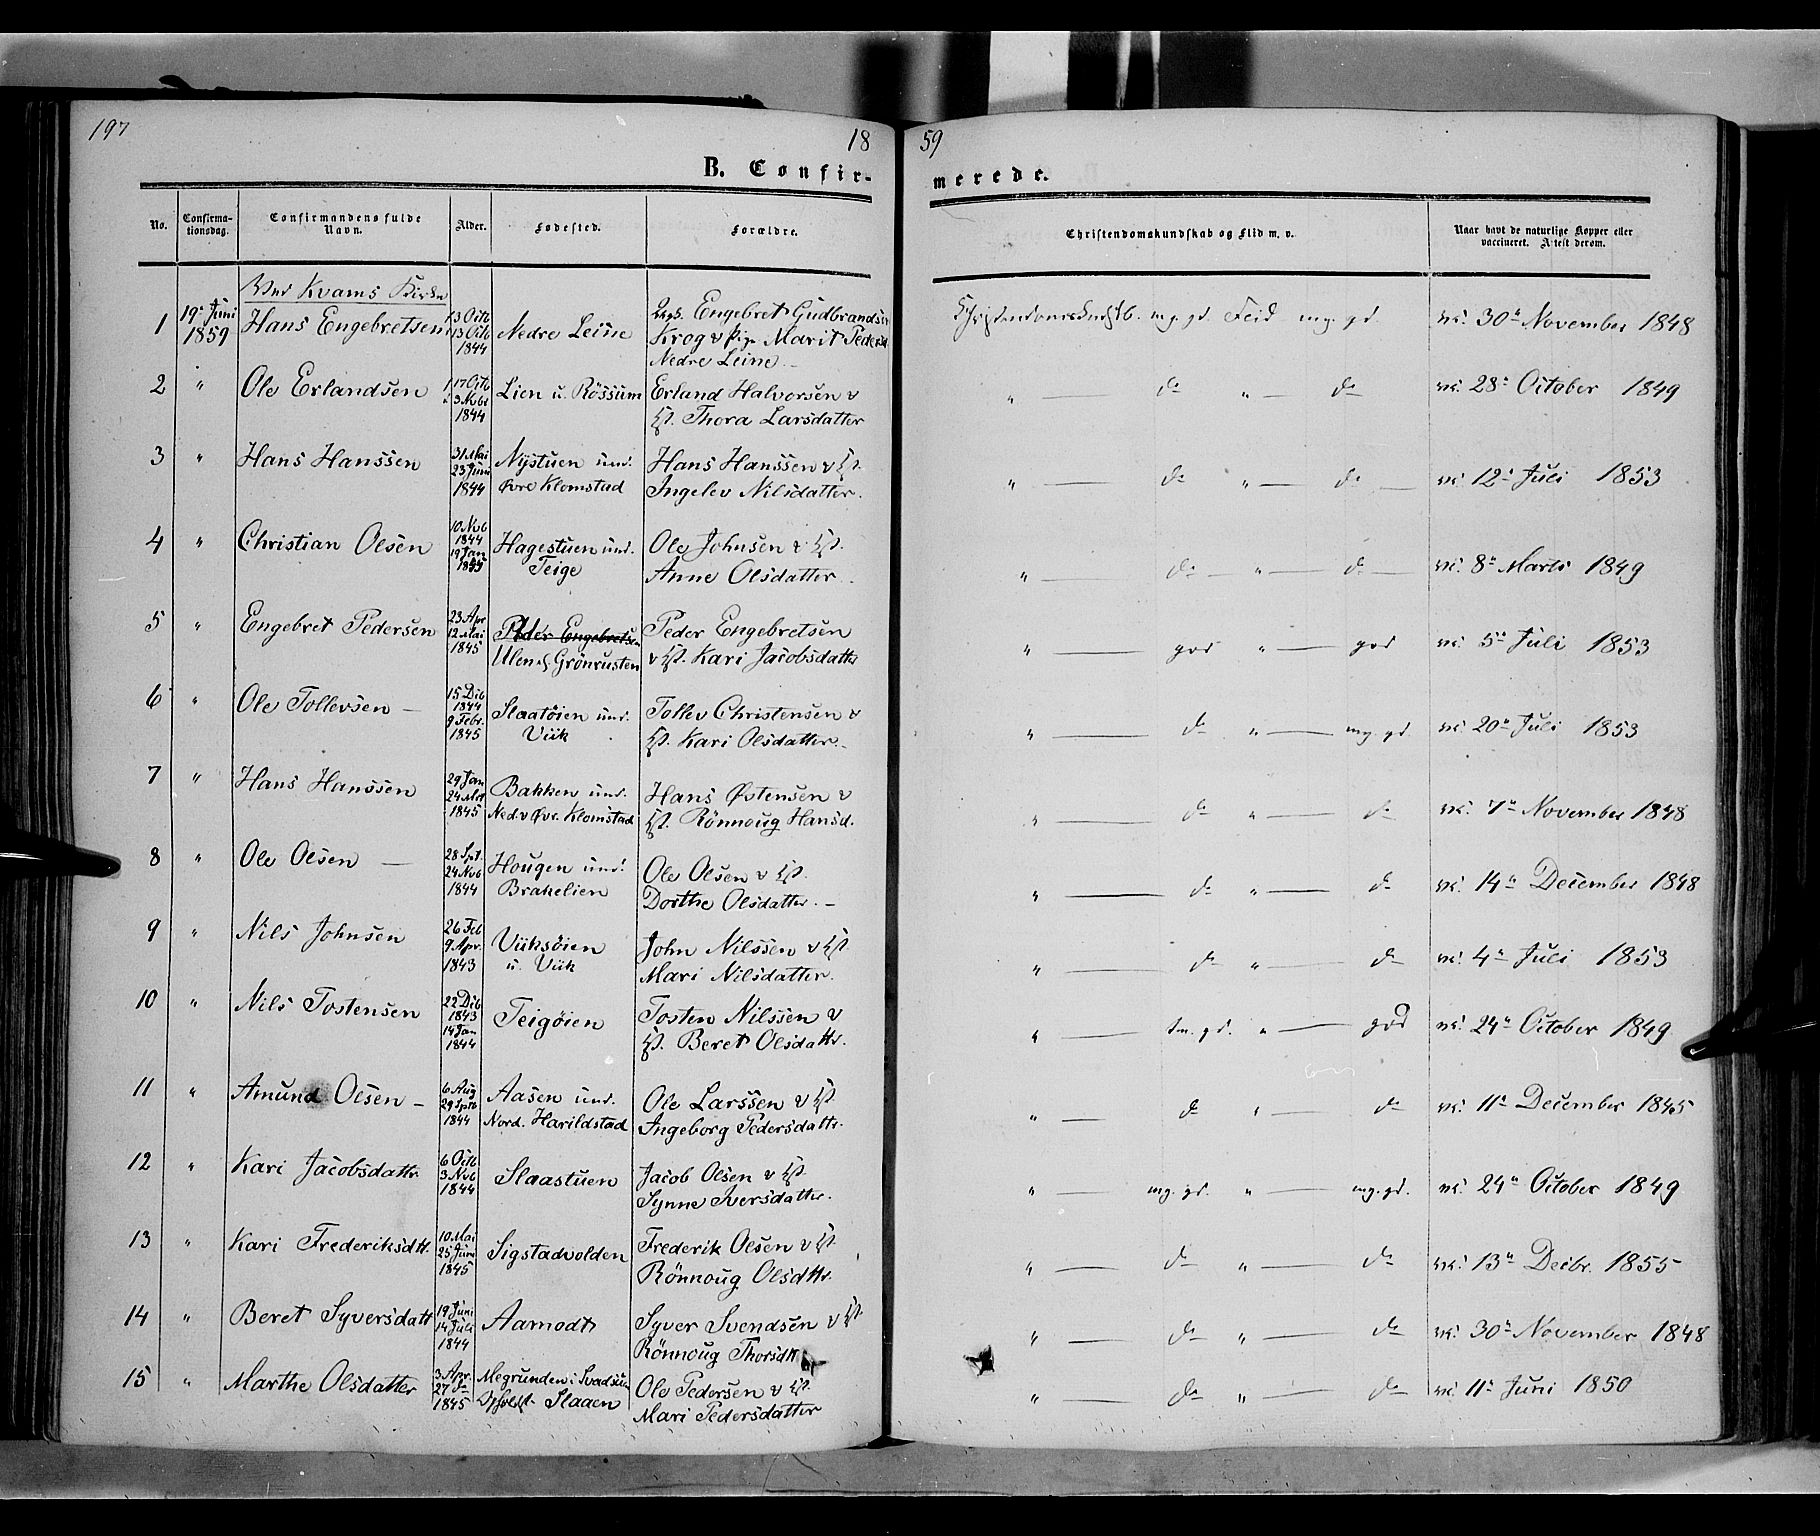 197
18
59
B. Confir-
merede.
No.
Confirma-
tionsdag.
Confirmandens fulde
Navn.
Alder.
Fødested.
Forældre.
Christendomskundskab og Flid m. v.
Naar havt de naturlige Kopper eller
vaccineret. Attest derom.
Ved Kvams Kirke
1 19de Juni 1859 Hans Engebretsen 13 Octb 1844 Nedre Leine Engebret Gudbrandsen
Krog & Pige Marit Pedersd.
Nedre Leine
Christendomskundskb. mg. gd. Flid mg. gd. vc. 30te November 1848
2 " Ole Erlandsen 17 Octb 3 Nvbr 1844 Lien u. Rössum Erland Halvorsen &
K. Thora Larsdatter
" — do " — do vc. 28de October 1849
3 " Hans Hanssen 31 Mai 23 Juni 1844 Nÿstuen und. Øvre Klomstad Hans Hanssen & K.
Ingelev Nilsdatter.
" — do " — do — vc. 12te Juli 1853
4 " Christian Olsen 10 Nvb 1844 19 Jan 1845 Hagestuen und. Teige Ole Johnsen & K.
Anne Olsdatter
" — do — " — do — vc. 8de Marts 1849
5 " Engebret Pedersen 23 Apr 12 Mai 1845 Peder Engebretsen Ulen Grönrusten Peder Engebretsen
& K. Kari Jacobsdatter
" — god " — god vc. 5te Juli 1853
6 " Ole Tollevsen — 15 Dcb 1844 9 Febr. 1845 Slaatöien und. Viik Tollev Christensen &
K. Kari Olsdatter.
" — do " — mg. gd. vc. 20de Juli 1853
7 " Hans Hanssen 29 Jan 24 Mrt 1845 Bakken und. Ned. & Øvr. Klomstad Hans Østensen &
K. Rönnoug Hansd.
" — do " — do vc. 7de November 1848
8 " Ole Olsen — 28 Spt. 24 Nvb 1844 Hougen und. Brakelien Ole Olsen & K.
Dorthe Olsdatter. —
" — do " — do vc. 14de December 1848
9 " Nils Johnsen 26 Feb 9 Apr. 1843 Viiksöien u. Viik John Nilssen & K.
Mari Nilsdatter.
" — do " — do vc. 4de Juli 1853
10 " Nils Tostensen 22 Dcb 1843 14 Jan 1844 Teigöien Tosten Nilssen &
K. Beret Olsdattr.
" — tm. gd. " — god vc. 24de October 1849
11 " Amund Olsen — 6 Aug 29 Sptb 1844 Aasen und. Nord. Harildstad Ole Larssen & K.
Ingeborg Pedersdattr.
" — do " — do vc. 11te December 1845
12 " Kari Jacobsdattr. 6 Octb 3 Nvb 1844 Slaastuen Jacob Olsen & K.
Synne Iversdatter.
" — mg. gd. " — mg. gd. vc. 24de October 1849
13 " Kari Frederiksdtt. 10 Mai 25 Juni 1845 Sigstadvolden Frederik Olsen & K.
Rönnoug Olsdttr.
" — do " — do vc. 13de Decbr. 1855
14 " Beret Syversdatt 19 Juni 14 Juli 1844 Aamodt Syver Svendsen & K.
Rönnoug Thorsdtt
" — do " — do vc. 30te November 1848
15 " Marthe Olsdatter 3 Apr. 27 do 1845 Megrunden i Slaaen Ole Pedersen & K.
Mari Pedersdatter
" — do " — do vc. 11te Juni 1850